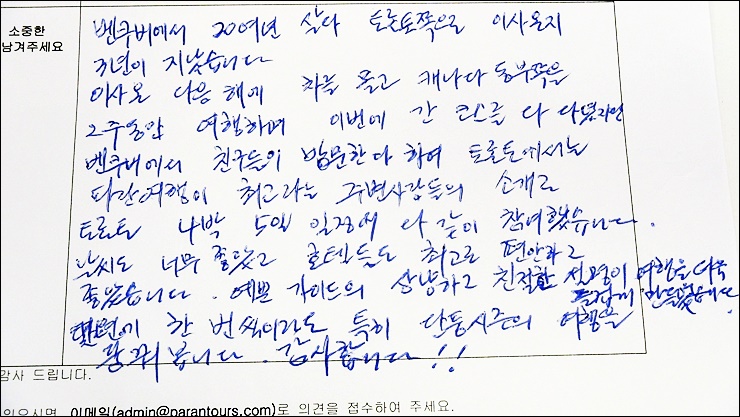 소중한
남겨주세요
벤쿠버에서 20여년 살다 토론토쪽으로 이사온지
3년이 지났습니다
이사온 다음 해에 차를 몰고 캐나다 동부쪽을
2주동안 여행하며 이번에 간 코스를 다 다녔지만
벤쿠버에서 친구들이 방문한다 하여 토론토에서는
파란여행이 최고라는 주변사람들의 소개로
토론토 4박 5일 일정에 다 같이 참여했습니다.
날씨도 너무 좋았고 호텔들도 최고로 편안하고
좋았습니다. 예쁜 가이드의 상냥하고 친절한 설명이 여행을 더욱
즐겁게 만들었습니다.
한 번씩이라도 특히 단풍시즌의 여행을
꿈꿔봅니다. 감사합니다!!
감사 드립니다.
있으시면 이메일(admin@parantours.com)로 의견을 접수하여 주세요.